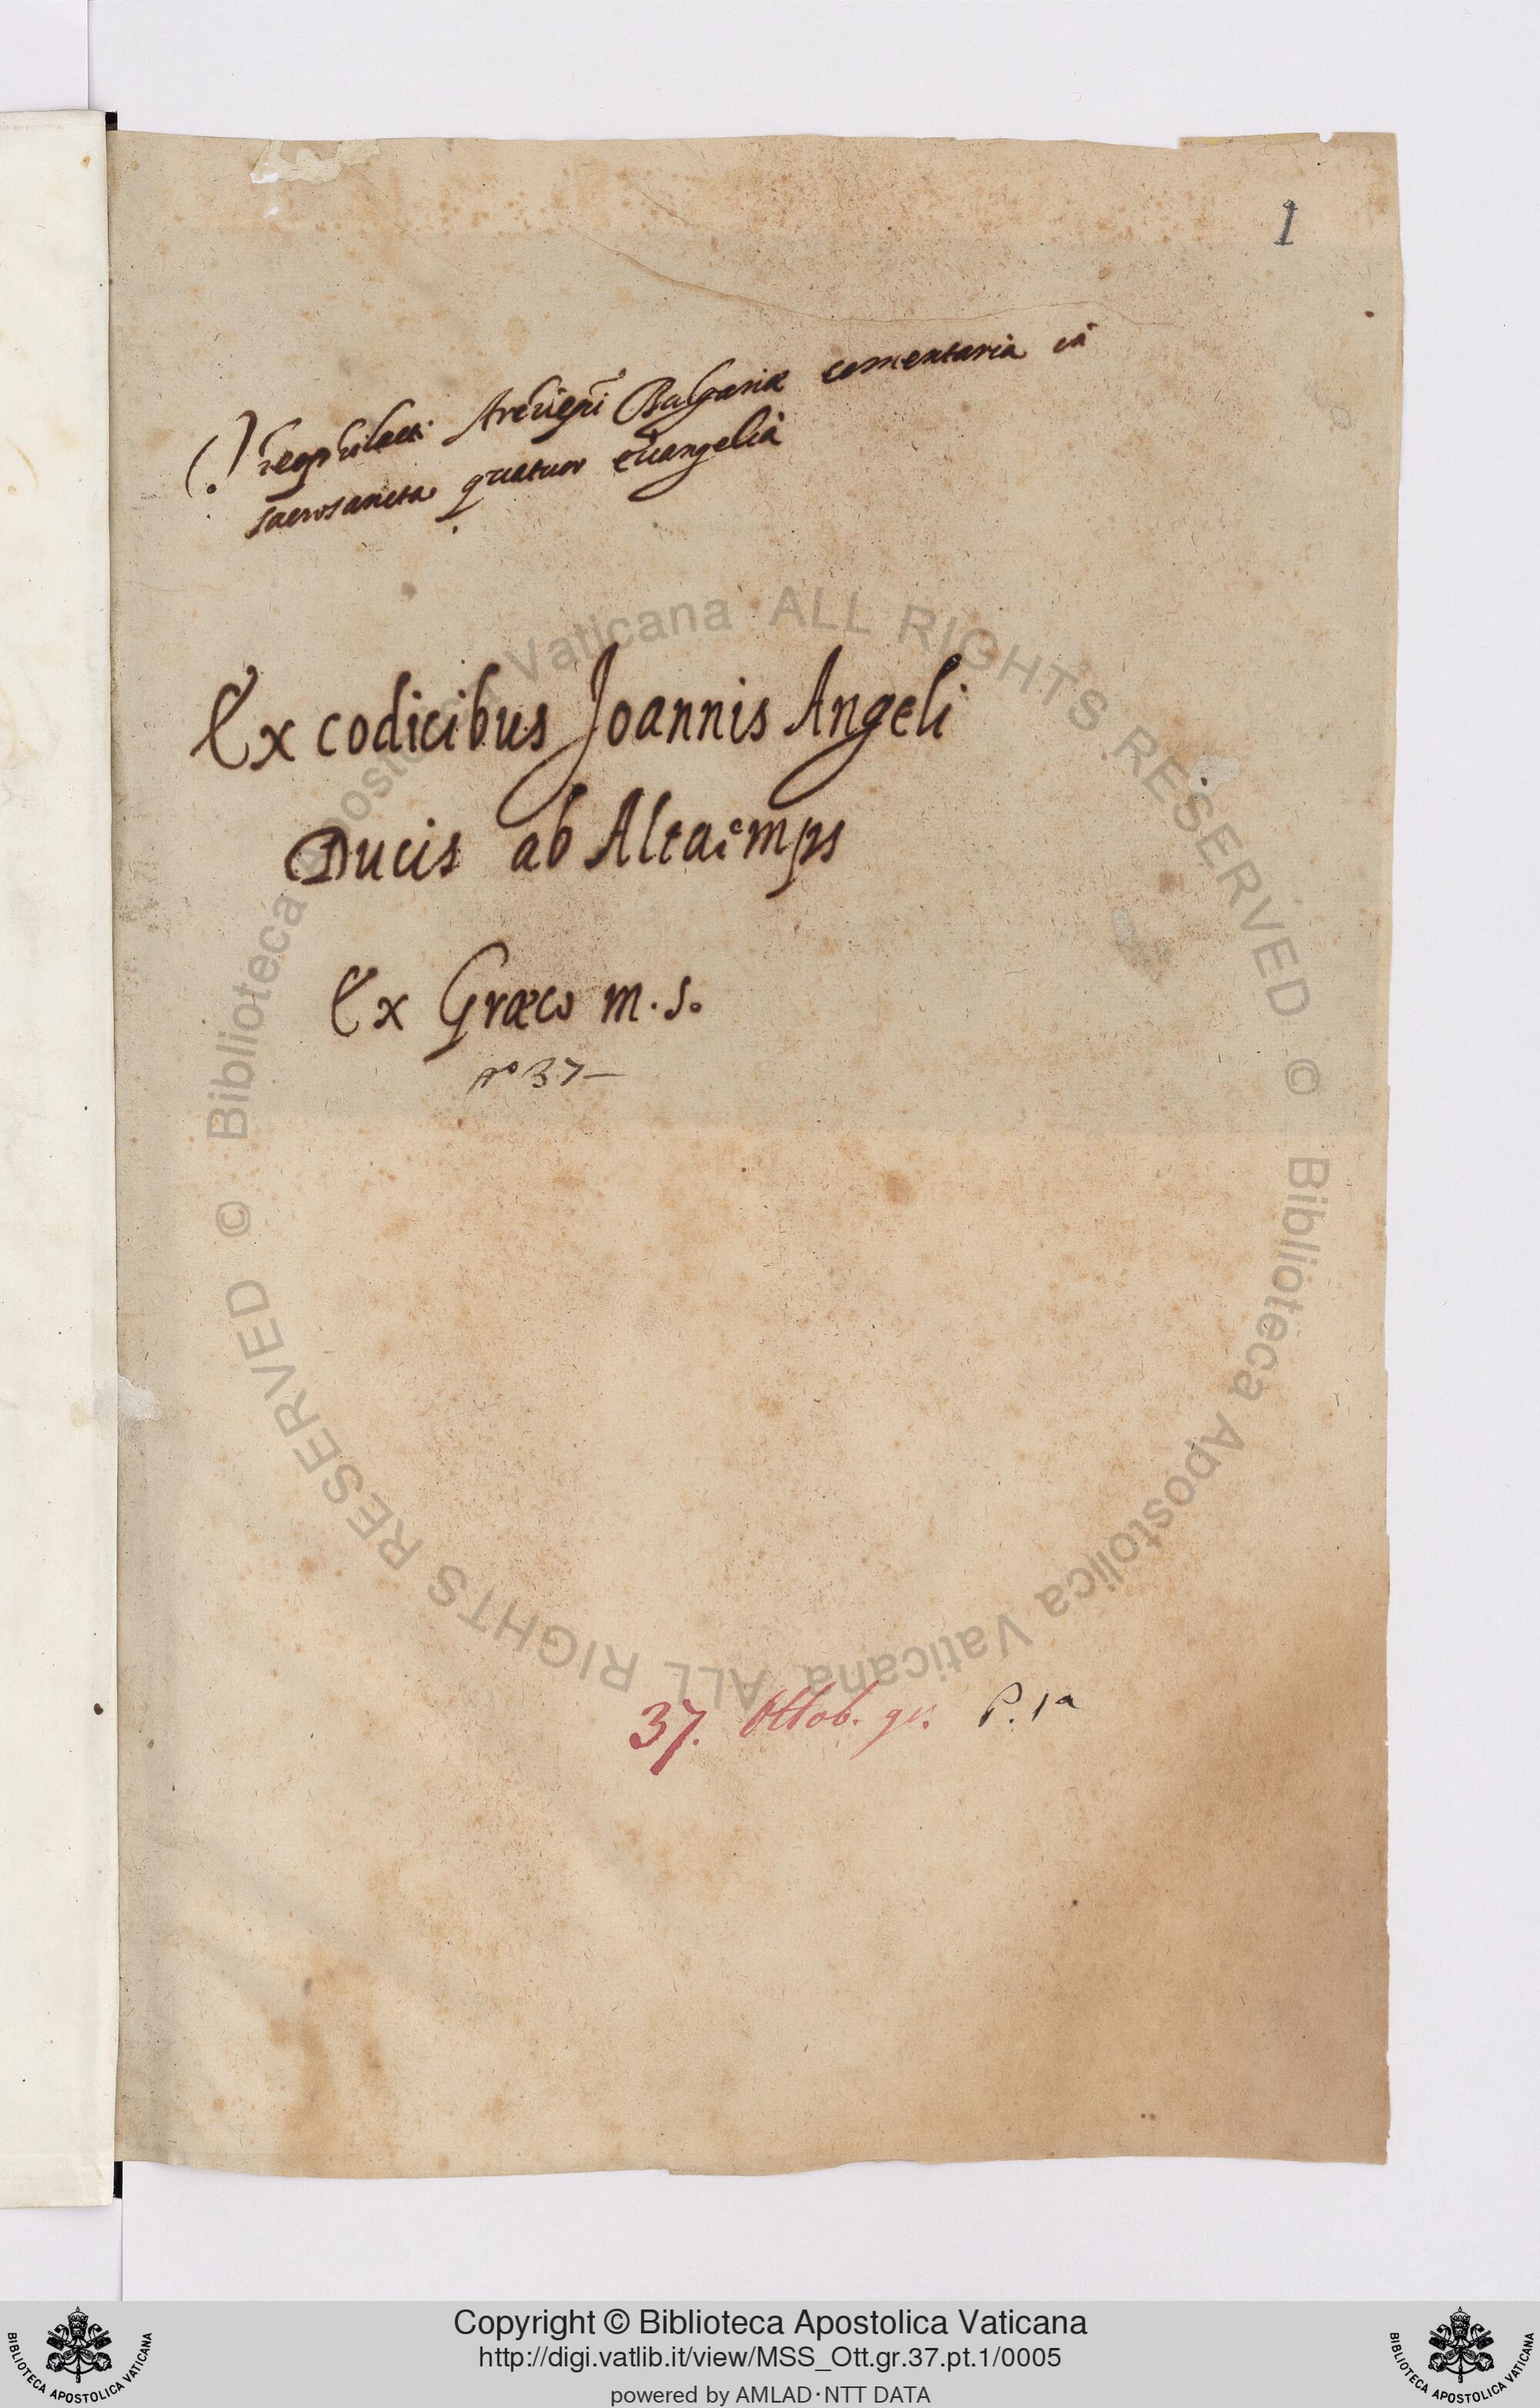 1
Theophilacti Archiepi Bulgariæ comentaria in
sacrosancta quatuor euangelia
Ex codicibus Joannis Angeli
Ducis ab Altaemps
Ex Græco m.s.
nº 37
37. Ottob. gr. P. 1ª
© Biblioteca Apostolica Vaticana ALL RIGHTS RESERVED
© Biblioteca Apostolica Vaticana ALL RIGHTS RESERVED
Copyright © Biblioteca Apostolica Vaticana
http://digi.vatlib.it/view/MSS_Ott.gr.37.pt.1/0005
powered by AMLAD·NTT DATA
BIBLIOTECA APOSTOLICA VATICANA
BIBLIOTECA APOSTOLICA VATICANA